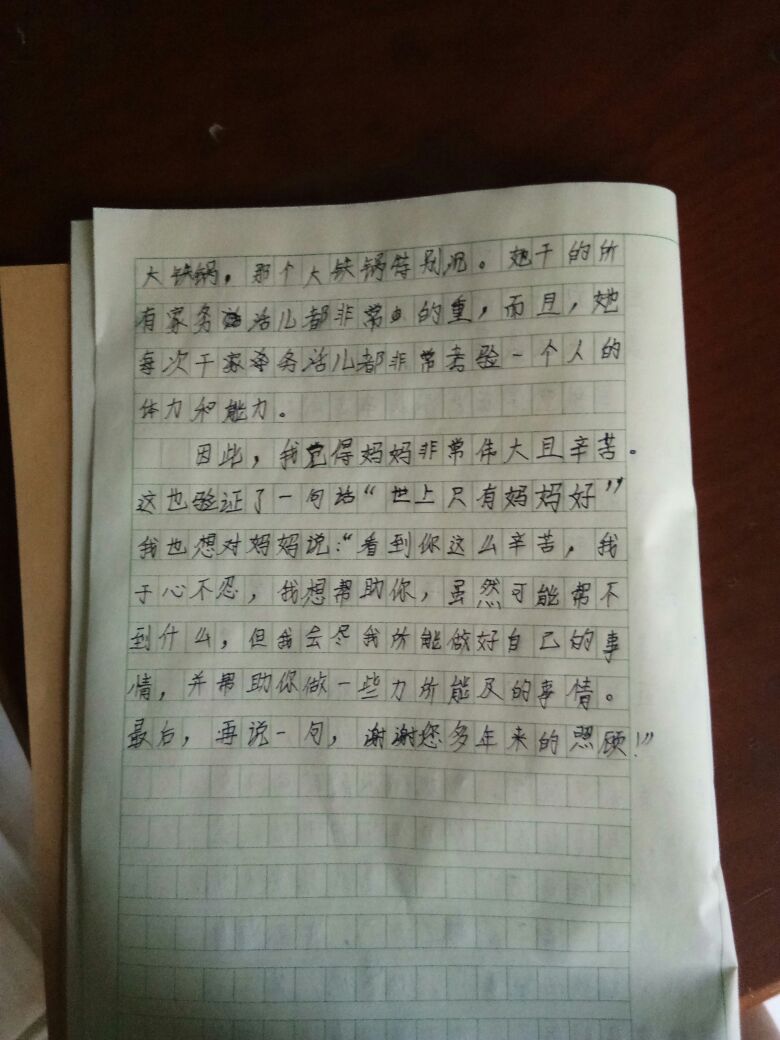 大铁锅，那个大铁锅特别沉。她干的所
有家务活儿都非常的重，而且，她
每次干家务活儿都非常考验一个人的
体力和能力。
因此，我觉得妈妈非常伟大且辛苦。
这也验证了一句话“世上只有妈妈好”
我也想对妈妈说：“看到你这么辛苦，我
于心不忍，我想帮助你，虽然可能帮不
到什么，但我会尽我所能做好自己的事
情，并帮助你做一些力所能及的事情。
最后，再说一句，谢谢您多年来的照顾！”